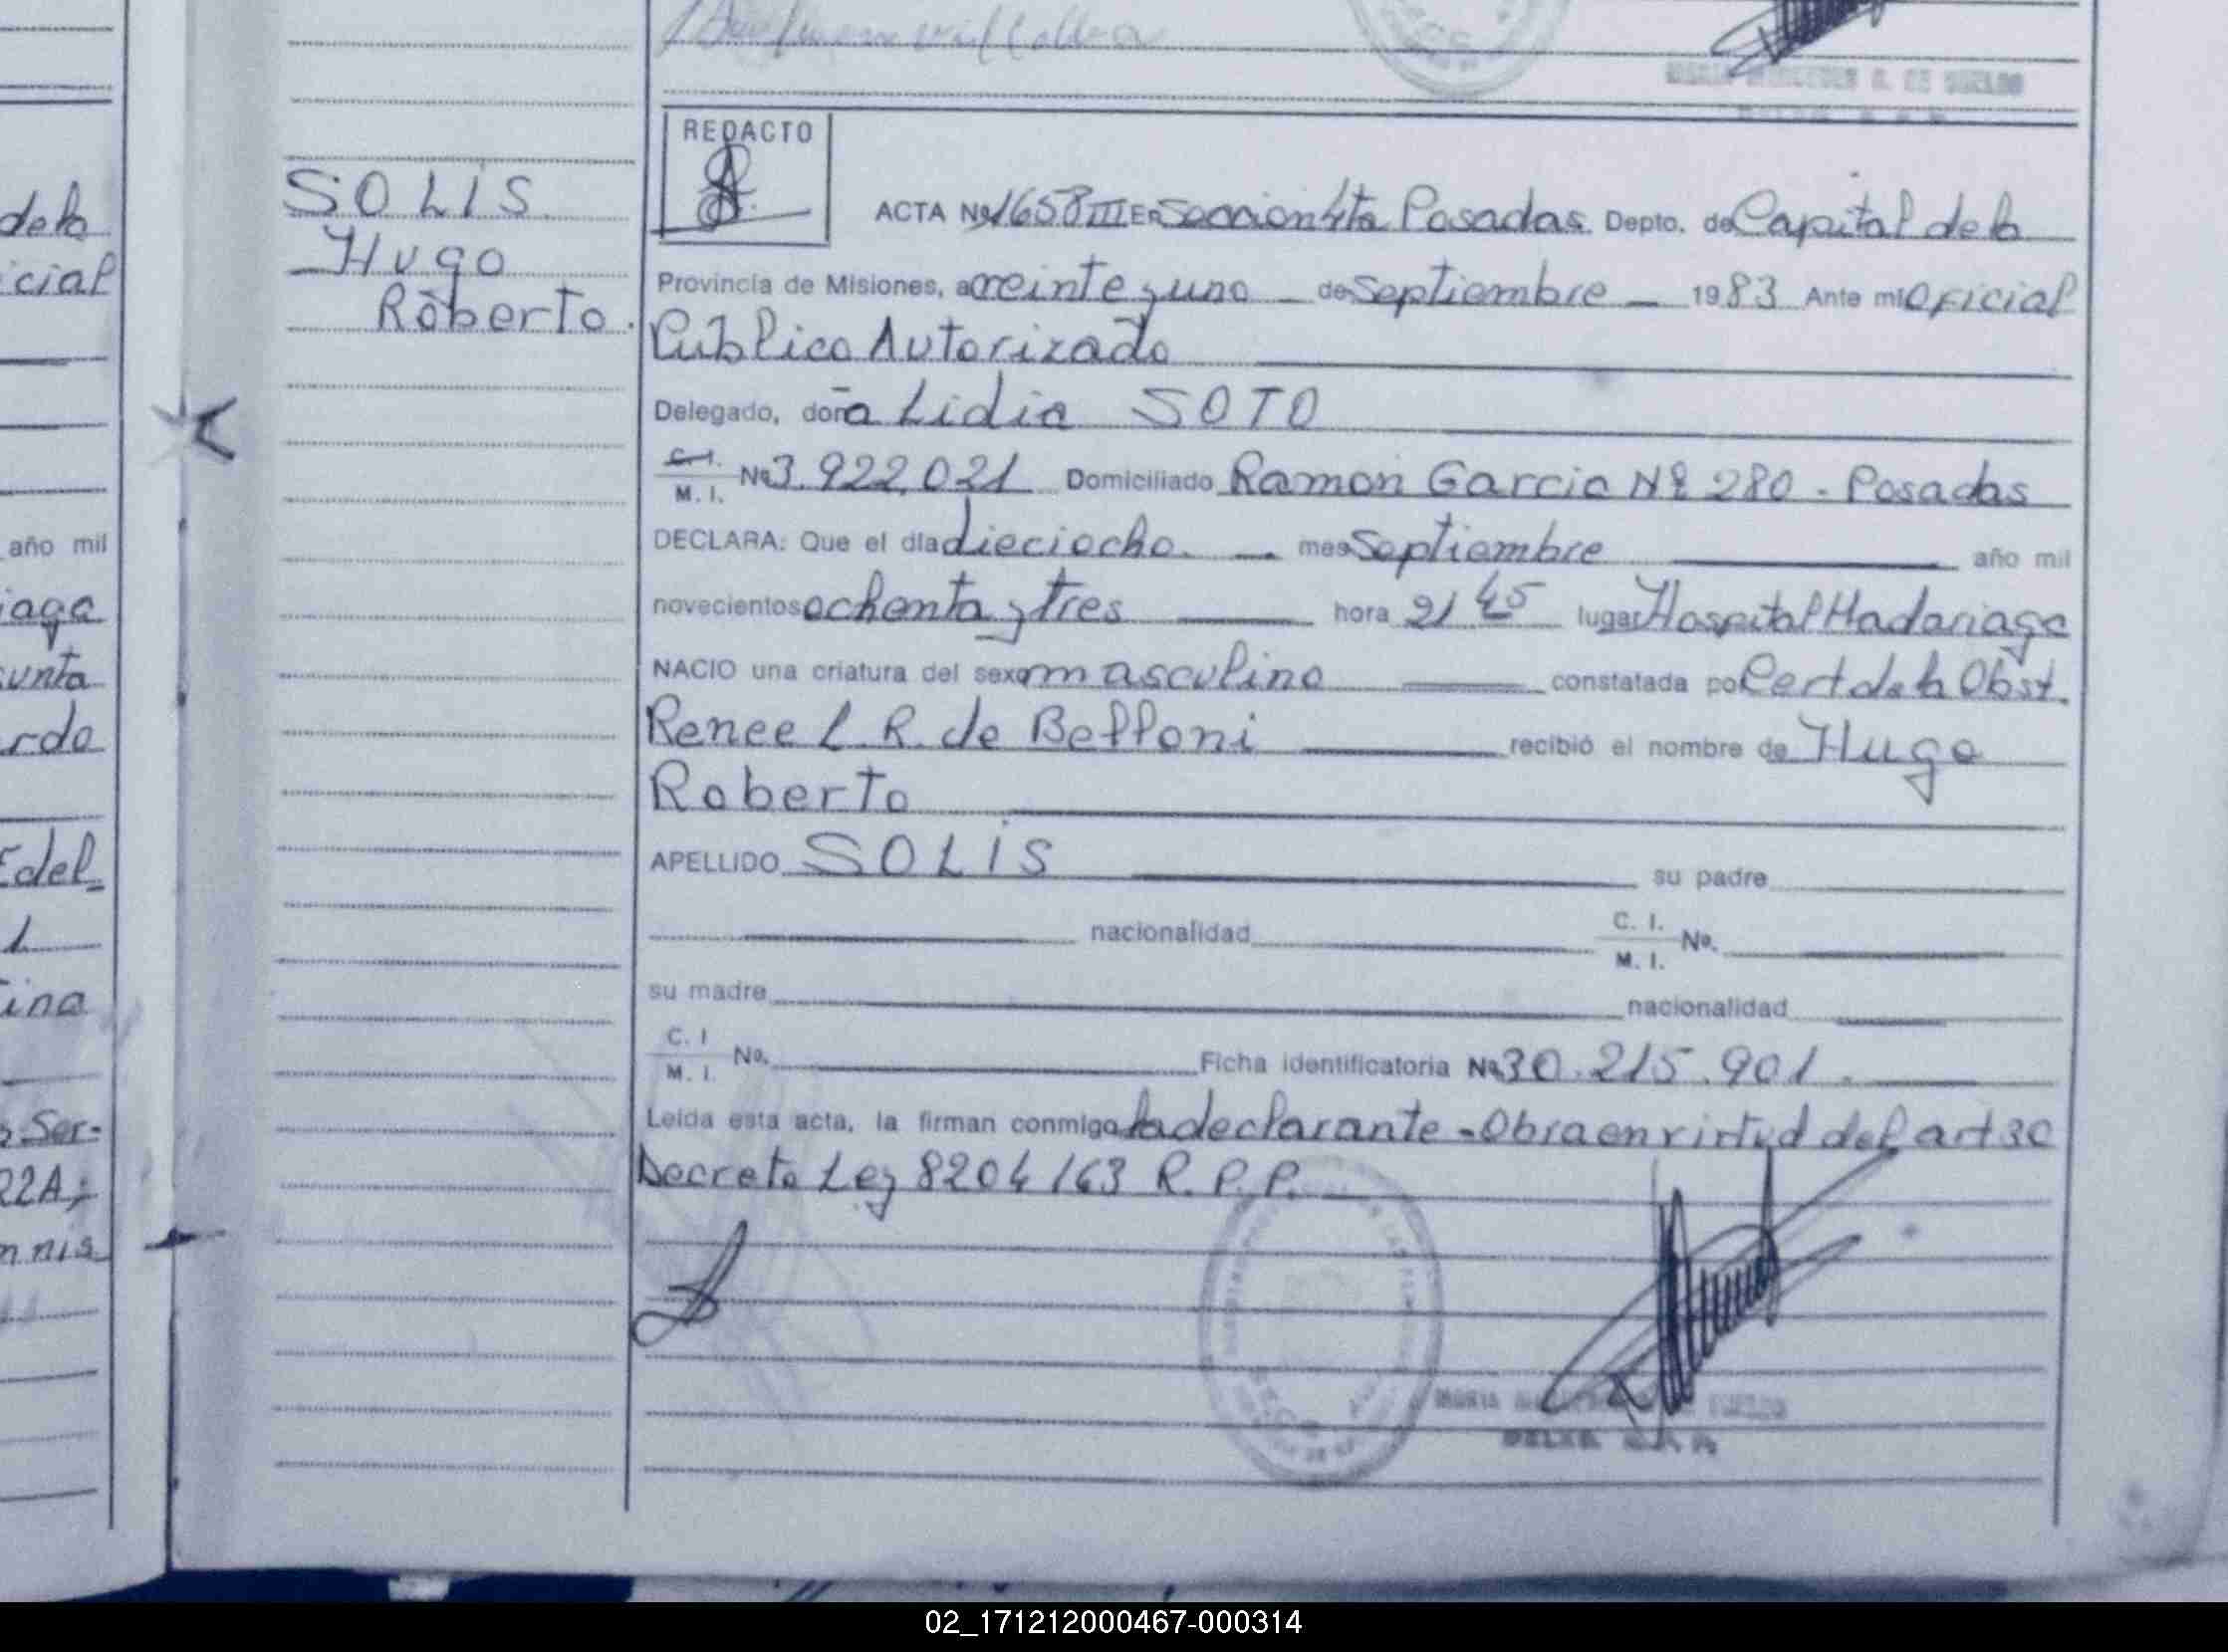 de la
icial
año mil
iaga
unta
rdo
del
1
ina
Ser-
22A;
nnis
SOLIS
Hugo
Roberto.
REDACTO
ACTA Nº 1658 III EN Seccion 4ta Posadas Depto. de Capital de la
Provincia de Misiones, a veinte y uno de Septiembre 1983 Ante mi Oficial
Publico Autorizado
Delegado, doña Lidia SOTO
C. I.
M. I. Nº 3.922.021 Domiciliado Ramon Garcia Nº 280 - Posadas
DECLARA: Que el día dieciocho. mes Septiembre año mil
novecientos ochenta y tres hora 21 45 lugar Hospital Madariaga
NACIO una criatura del sexo masculino constatada por Cert de la Obst.
Renee L. R. de Belloni recibió el nombre de Hugo
Roberto
APELLIDO SOLIS su padre
nacionalidad C. I.
M. I. No.
su madre nacionalidad
C. I
M. I. No. Ficha identificatoria Nº 30.215.901.
Leída esta acta, la firman conmigo la declarante - Obra en virtud del art 30
Decreto Ley 8204/63 R. P. P.
MARIA
02_171212000467-000314